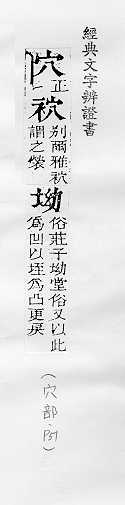 經典文字辨證書
穴正
袕別爾雅袕
謂之褮
坳俗莊子坳堂俗又以此
爲凹以垤爲凸更
(穴部.P51)